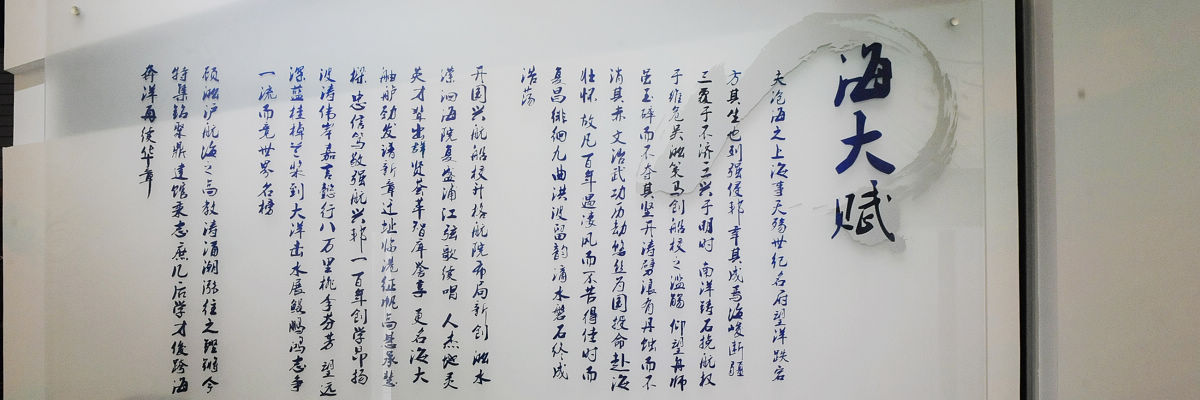 海大赋
夫沧海之上海事天殇世纪名府望洋跌宕
方其生也列强侵邦 幸其成焉海峻断疆
三覆于不济三兴于明时 南洋铸石挽航权
于维危吴淞策马创船校之滥觞 仰望舟师
莹玉碎而不夺其坚丹涛劈浪有丹蚀而不
消其赤 文治武功历劫 为国授命赴海
壮怀 故凡百年遏凌风而不苦得佳时而
复昌徘徊九曲洪波留韵滴水磐石终成
浩荡
开国兴航船校升格航院布局新创 淞水
潆洄海院复盛浦江弦歌续唱 人杰地灵
英才荣出群贤荟萃智库誉享 更名海大
舳舻劲发谱新章迁址临港征帆高悬承楚
探忠信笃敬强航兴邦一百年创学昂扬
波涛伟岸嘉言懿行八万里桃李芬芳 望远
深蓝桂棹兰桨到大洋击水展鲲鹏鸿志争
一流而竞世界名榜
顾淞沪航海之高教涛涌潮涨往之 今
特集铭案鼎建馆秉志庶几后学才俊跨海
奔洋再续华章